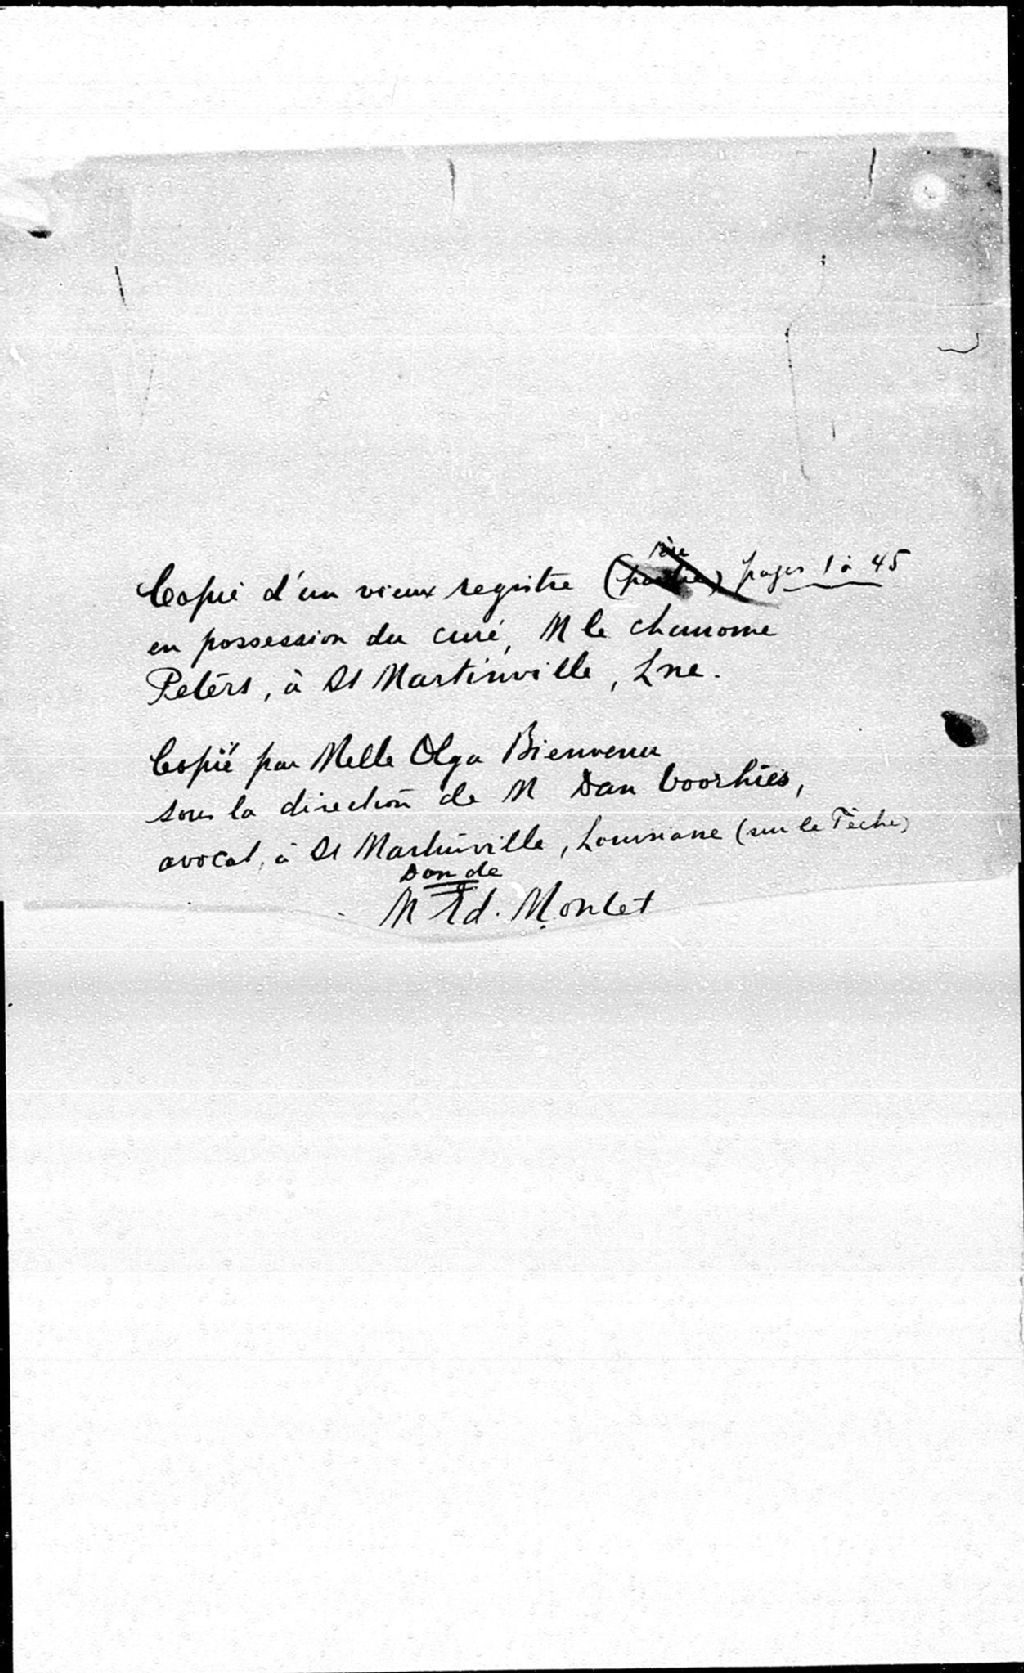 Copie d'un vieux registre (1ère partie) pages 1 à 45
en possession du curé, M le chanoine
Peters, à St Martinville, Lne.
Copié par Melle Olga Bienvenu
sous la direction de M Dan Voorhies,
avocat, à St Martinville, Louisiane (sur le Têche)
Don de
M Ed. Montet